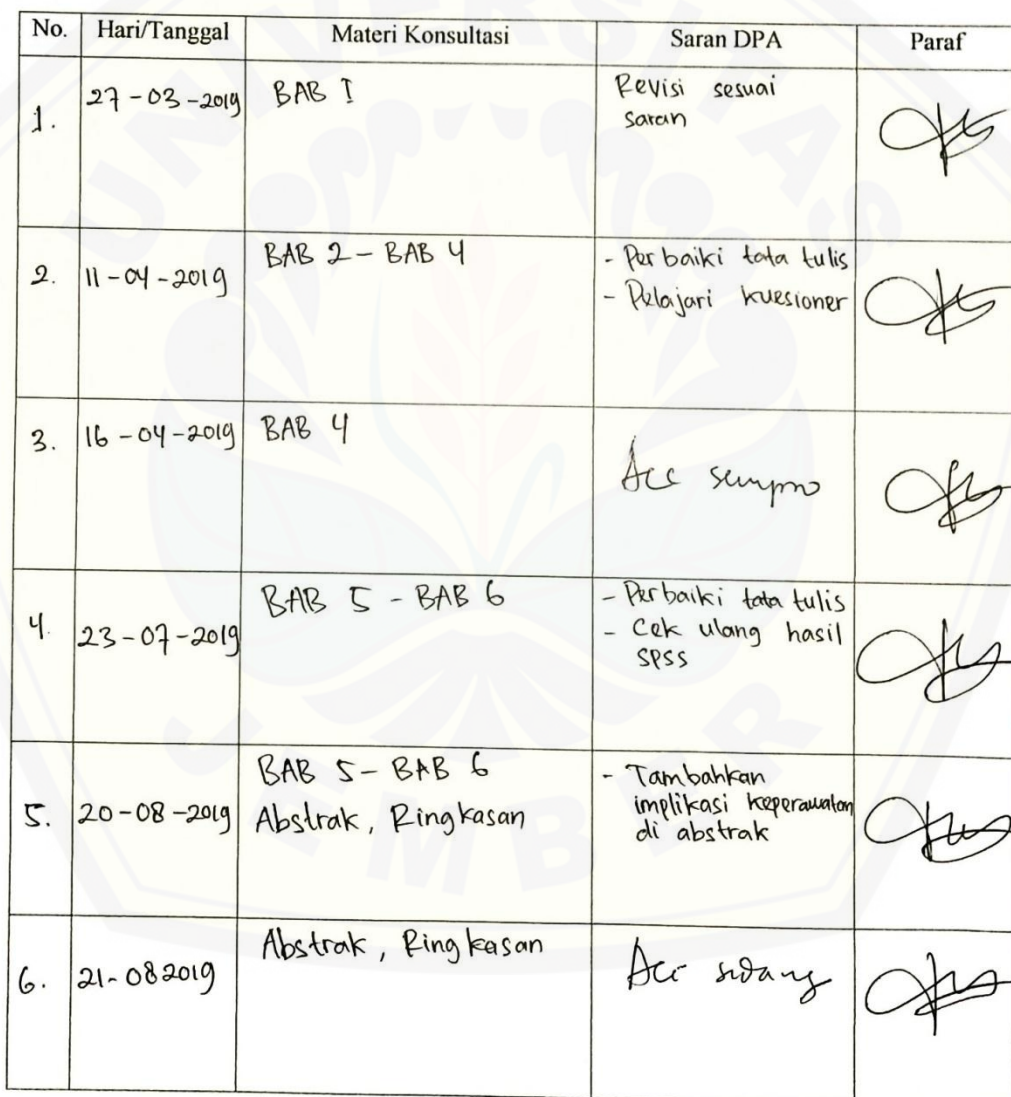 UNIVERSITAS
JEMBER
No. Hari/Tanggal Materi Konsultasi Saran DPA Paraf
1. 27-03-2019 BAB I Revisi sesuai
saran
2. 11-04-2019 BAB 2 - BAB 4 - Perbaiki tata tulis
- Pelajari kuesioner
3. 16-04-2019 BAB 4 Acc sempro
4. 23-07-2019 BAB 5 - BAB 6 - Perbaiki tata tulis
- Cek ulang hasil
SPSS
BAB 5 - BAB 6 - Tambahkan
5. 20-08-2019 Abstrak, Ringkasan implikasi keperawatan
di abstrak
6. 21-082019 Abstrak, Ringkasan Acc sidang